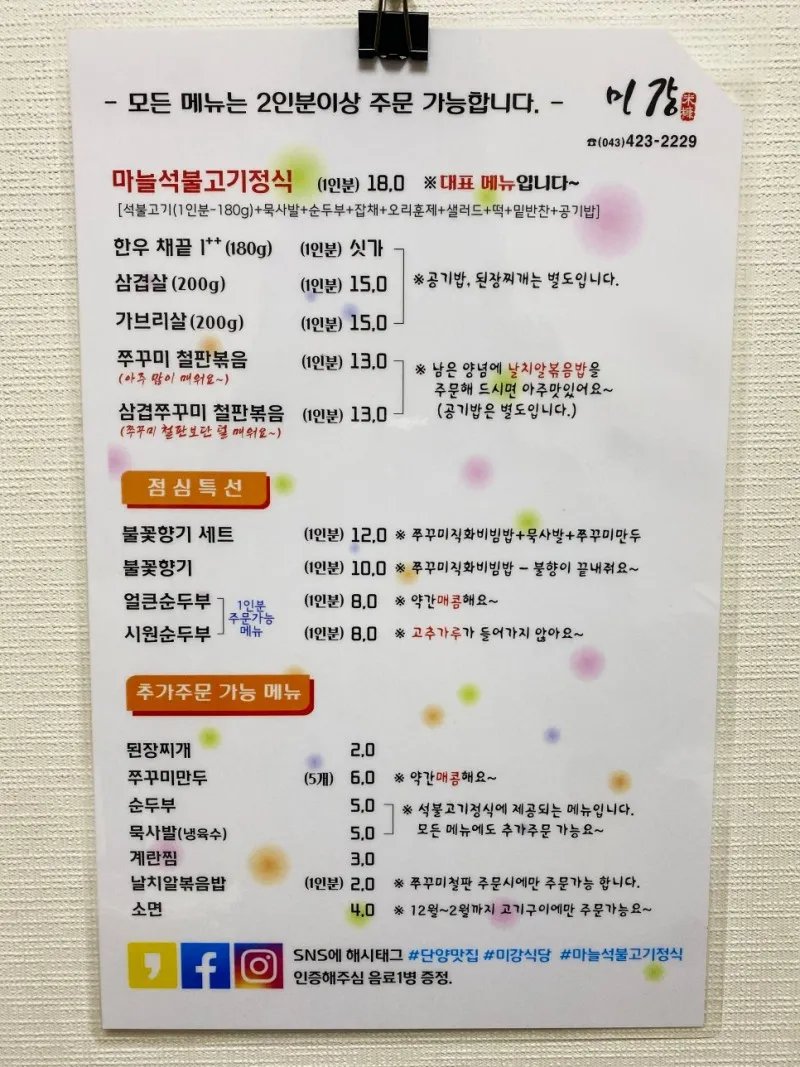 - 모든 메뉴는 2인분이상 주문 가능합니다. -
미강
☎(043)423-2229
마늘석불고기정식 (1인분) 18,0 ※대표 메뉴입니다~
[석불고기(1인분-180g)+묵사발+순두부+잡채+오리훈제+샐러드+떡+밑반찬+공기밥]
한우 채끝 1++(180g) (1인분) 싯가
삼겹살(200g) (1인분) 15,0 ※공기밥, 된장찌개는 별도입니다.
가브리살(200g) (1인분) 15,0
쭈꾸미 철판볶음 (1인분) 13,0 ※ 남은 양념에 날치알볶음밥을
(아주 많이 매워요~) 주문해 드시면 아주맛있어요~
삼겹쭈꾸미 철판볶음 (1인분) 13,0 (공기밥은 별도입니다.)
(쭈꾸미 철판보단 덜 매워요~)
점심특선
불꽃향기 세트 (1인분) 12,0 ※ 쭈꾸미직화비빔밥+묵사발+쭈꾸미만두
불꽃향기 (1인분) 10,0 ※ 쭈꾸미직화비빔밥 - 불향이 끝내줘요~
얼큰순두부 (1인분) 8,0 ※ 약간매콤해요~
1인분
주문가능
메뉴
시원순두부 (1인분) 8,0 ※ 고추가루가 들어가지 않아요~
추가주문 가능 메뉴
된장찌개 2,0
쭈꾸미만두 (5개) 6,0 ※ 약간매콤해요~
순두부 5,0 ※ 석불고기정식에 제공되는 메뉴입니다.
묵사발(냉육수) 5,0 모든 메뉴에도 추가주문 가능요~
계란찜 3,0
날치알볶음밥 (1인분) 2,0 ※ 쭈꾸미철판 주문시에만 주문가능 합니다.
소면 4,0 ※ 12월~2월까지 고기구이에만 주문가능요~
SNS에 해시태그 #단양맛집 #미강식당 #마늘석불고기정식
인증해주심 음료1병 증정.